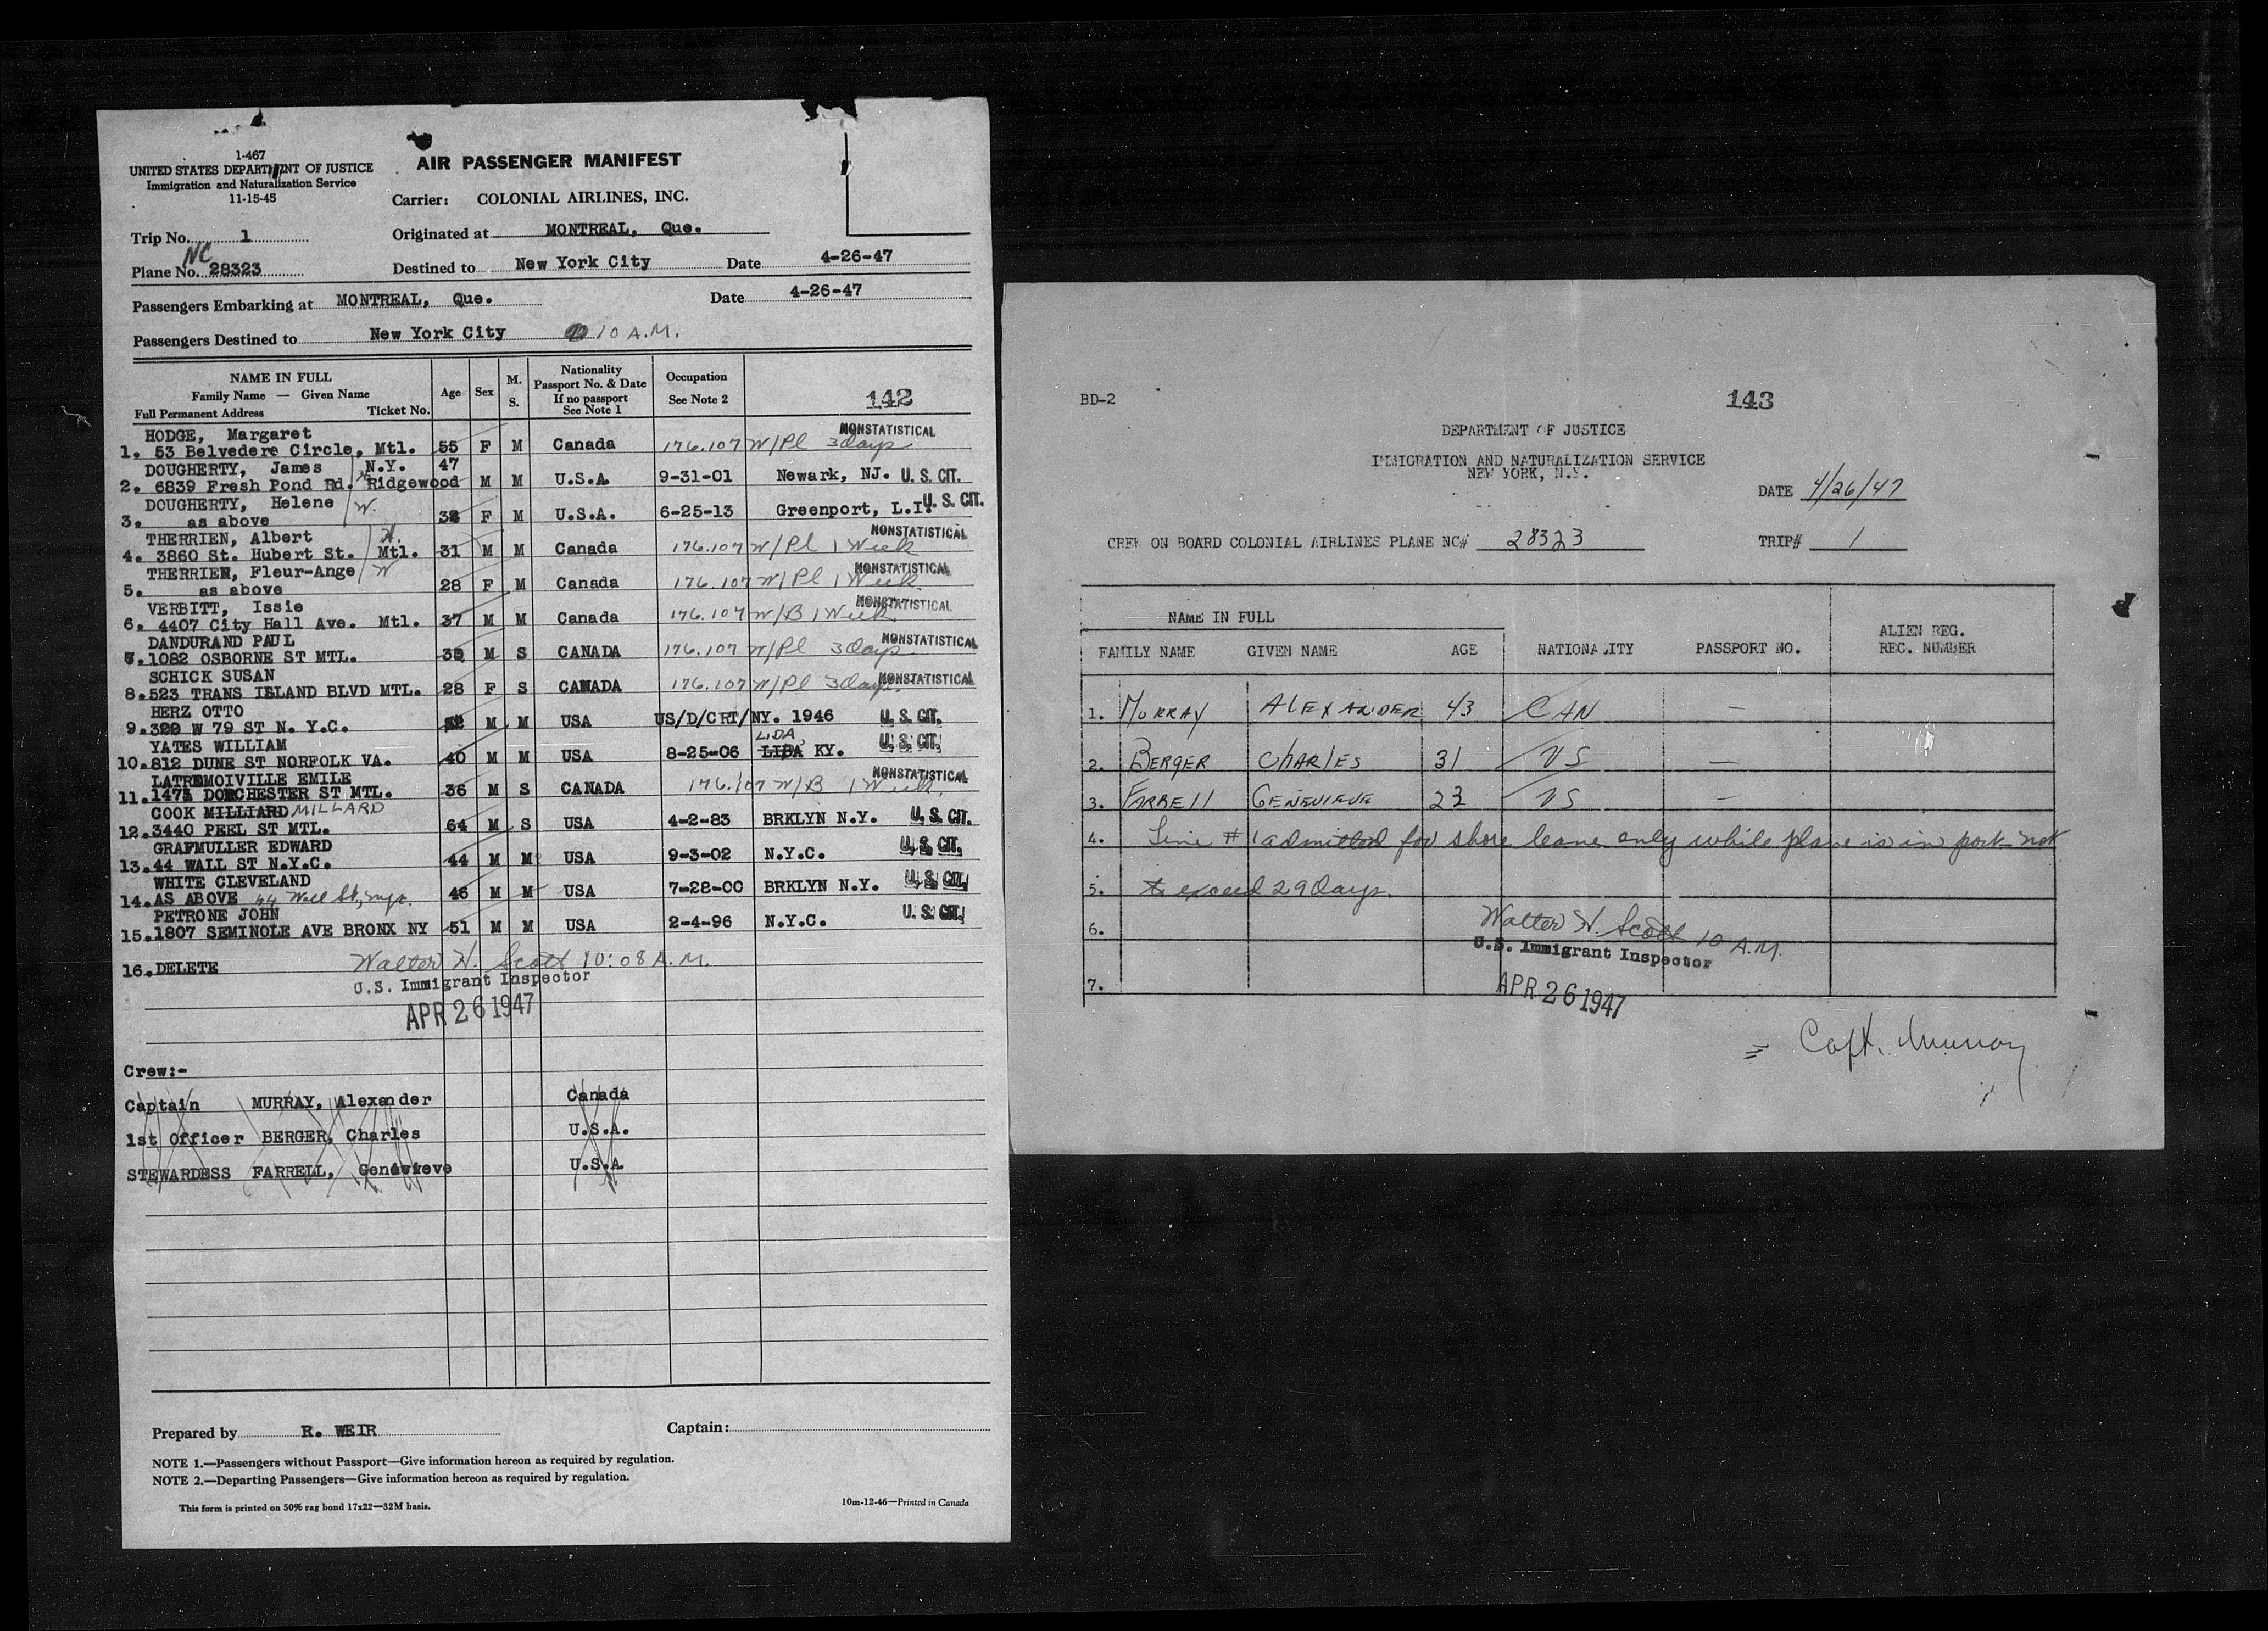 1-467
UNITED STATES DEPARTMENT OF JUSTICE
Immigration and Naturalization Service
11-15-45
AIR PASSENGER MANIFEST
Carrier: COLONIAL AIRLINES, INC.
Trip No. 1
Originated at MONTREAL, Que.
NC
Plane No. 28323
Destined to New York City Date 4-26-47
Passengers Embarking at MONTREAL, Que. Date 4-26-47
Passengers Destined to New York City 10 A.M.
NAME IN FULL
Family Name — Given Name
Full Permanent Address Ticket No.
Age Sex M. S.
Nationality
Passport No. & Date
If no passport
See Note 1
Occupation
See Note 2
142
HODGE, Margaret NONSTATISTICAL
1. 53 Belvedere Circle, Mtl. 55 F M Canada 176.107 W/Pl 3 days
DOUGHERTY, James N.Y. 47
2. 6839 Fresh Pond Rd. Ridgewood M M U.S.A. 9-31-01 Newark, NJ. U.S. CIT.
DOUGHERTY, Helene W.
3. as above F M U.S.A. 6-25-13 Greenport, L.I. U.S. CIT.
THERRIEN, Albert H. NONSTATISTICAL
4. 3860 St. Hubert St. Mtl. 31 M M Canada 176.107 W/Pl 1 Week
THERRIEN, Fleur-Ange W NONSTATISTICAL
5. as above 28 F M Canada 176.107 W/Pl 1 Week
VERBITT, Issie NONSTATISTICAL
6. 4407 City Hall Ave. Mtl. 37 M M Canada 176.107 W/B 1 Week
DANDURAND PAUL NONSTATISTICAL
7. 1082 OSBORNE ST MTL. M S CANADA 176.107 W/Pl 3 days
SCHICK SUSAN NONSTATISTICAL
8. 523 TRANS ISLAND BLVD MTL. 28 F S CANADA 176.107 W/Pl 3 days
HERZ OTTO
9. W 79 ST N. Y.C. M M USA US/D/CRT/NY. 1946 U.S. CIT.
YATES WILLIAM LIDA
10. 812 DUNE ST NORFOLK VA. 40 M M USA 8-25-06 LIDA KY. U.S. CIT.
LATREMOIVILLE EMILE NONSTATISTICAL
11. 1471 DORCHESTER ST MTL. 36 M S CANADA 176.107 W/B 1 Week
COOK MILLIARD MILLARD
12. 3440 PEEL ST MTL. 64 M S USA 4-2-83 BRKLYN N.Y. U.S. CIT.
GRAFMULLER EDWARD
13. 44 WALL ST N.Y.C. 44 M M USA 9-3-02 N.Y.C. U.S. CIT.
WHITE CLEVELAND
14. AS ABOVE 44 Wall St., nyc. 46 M M USA 7-28-00 BRKLYN N.Y. U.S. CIT.
PETRONE JOHN
15. 1807 SEMINOLE AVE BRONX NY 51 M M USA 2-4-96 N.Y.C. U.S. CIT.
16. DELETE Walter H. Scott 10:08 A.M.
U.S. Immigrant Inspector
APR 26 1947
Crew:-
Captain MURRAY, Alexander Canada
1st Officer BERGER, Charles U.S.A.
STEWARDESS FARRELL, Genevieve U.S.A.
Prepared by R. WEIR Captain:
NOTE 1.—Passengers without Passport—Give information hereon as required by regulation.
NOTE 2.—Departing Passengers—Give information hereon as required by regulation.
This form is printed on 50% rag bond 17x22—32M basis.
10m-12-46—Printed in Canada
BD-2
143
DEPARTMENT OF JUSTICE
IMMIGRATION AND NATURALIZATION SERVICE
NEW YORK, N.Y.
DATE 4/26/47
CREW ON BOARD COLONIAL AIRLINES PLANE NC# 28323 TRIP# 1
NAME IN FULL
FAMILY NAME GIVEN NAME AGE NATIONALITY PASSPORT NO. ALIEN REG. REC. NUMBER
1. MURRAY ALEXANDER 43 CAN —
2. BERGER CHARLES 31 US —
3. FARRELL GENEVIEVE 23 US —
4. Line # 1 admitted for shore leave only while plane is in port not
5. to exceed 29 days.
6. Walter H. Scott 10 A.M.
U.S. Immigrant Inspector
7. APR 26 1947
Capt. Murray